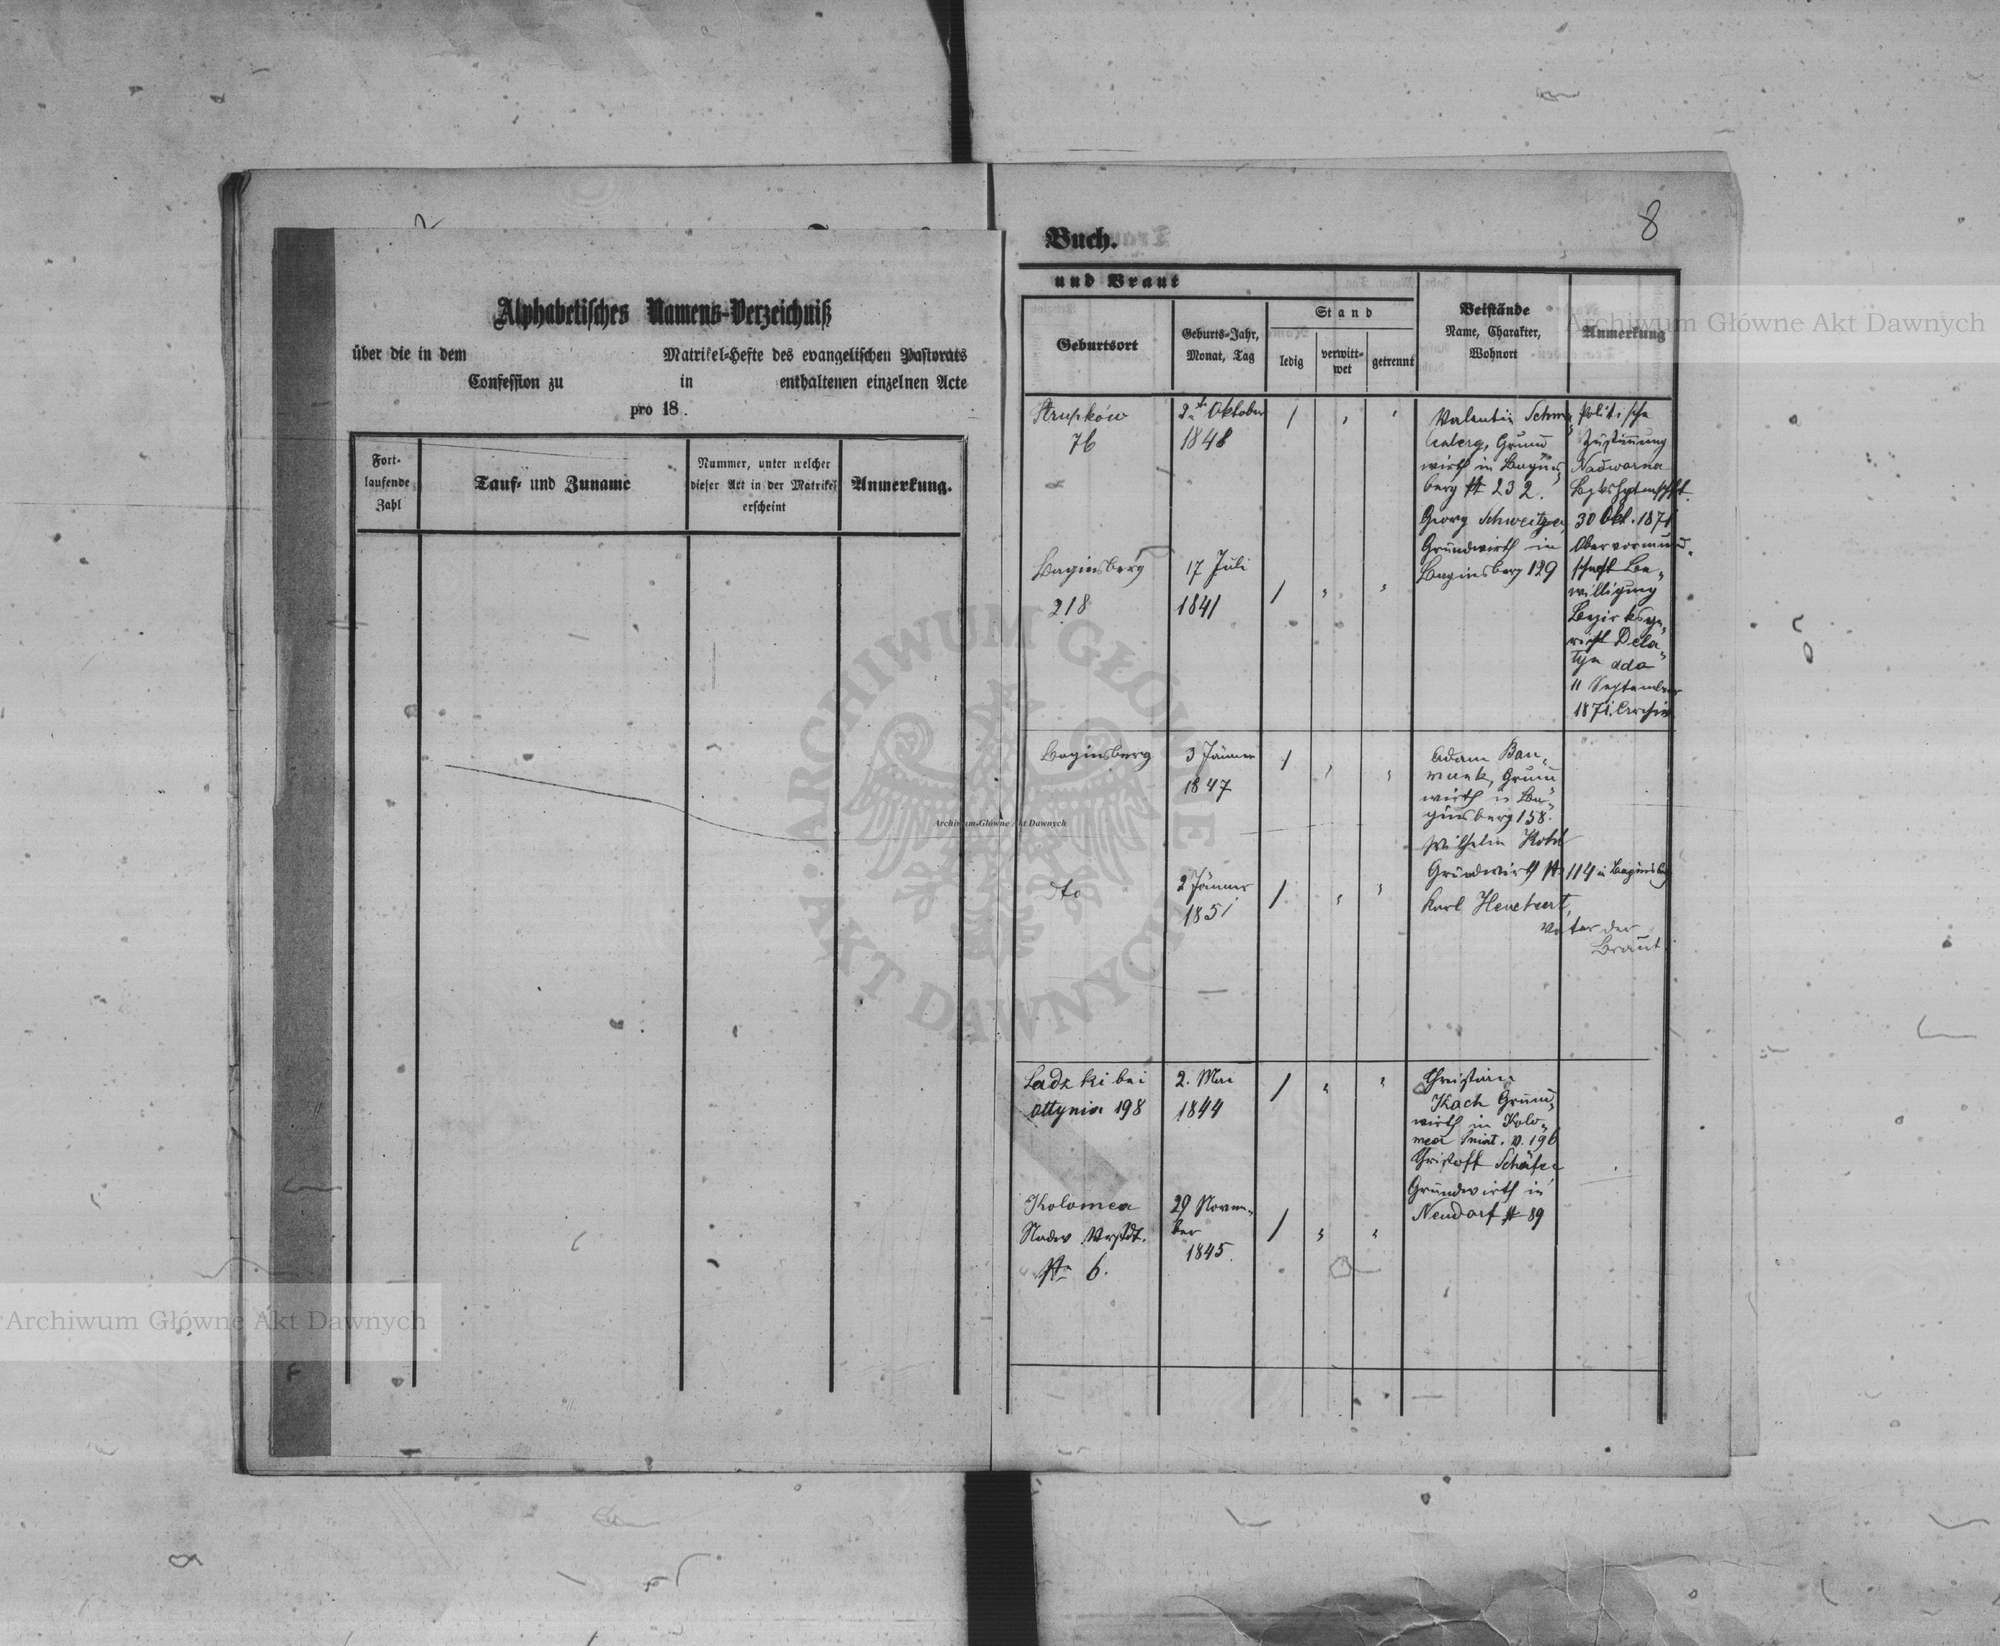 8
Alphabetisches Namens-Verzeichniß
über die in dem Matrikel-Hefte des evangelischen Pastorats
Confession zu in enthaltenen einzelnen Acte
pro 18 .
Fort-
laufende
Zahl
Tauf- und Zuname
Nummer, unter welcher
dieser Act in der Matrikel
erscheint
Anmerkung.
Buch.
und Braut
Geburtsort
Geburts-Jahr,
Monat, Tag
Stand
ledig
verwitt-
wet
getrennt
Beistände
Name, Charakter,
Wohnort
Anmerkung
Strupków
76
2t Oktober
1848
Valentin
Grund
wirth in Bagins
berg # 232.
Georg Schweitzer
Grundwirth in
Baginsberg 129
Politische
Zustimmung
Nadworna
30 Okt. 1871
Obervormund
schaft Be„
willigung
Bezirksge„
richt Dela„
tyn ddo
11 September
1871.
Baginsberg
218
17 Juli
1841
Baginsberg
3 Jänner
1847
Adam
Grund
wirth in Ba„
ginsberg 158.
Wilhelm
Grundwirth № 114 in Baginsberg
Karl
Vater der
Braut
dto
2 Jänner
1851
Ladzki bei
Ottynia 198
2. Mai
1844
Christian
Koch Grund„
wirth in Kolo„
mea Sniat. V. 196
Christoff Schäfer
Grundwirth in
Neudorf # 89
Kolomea
Nadw Vrstdt.
№ 6.
29 Novem„
ber
1845.
Archiwum Główne Akt Dawnych
Archiwum Główne Akt Dawnych
Archiwum Główne Akt Dawnych
ARCHIWUM GŁÓWNE
AKT DAWNYCH